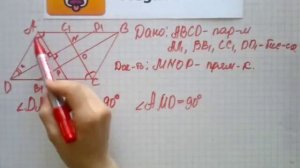 A C₁ D₁ B
Дано: ABCD-пар-м
AA₁, BB₁, CC₁, DD₁-бис-сы
Док-ть: MNOP-прям-к.
D C
∠AMD=90°
90°